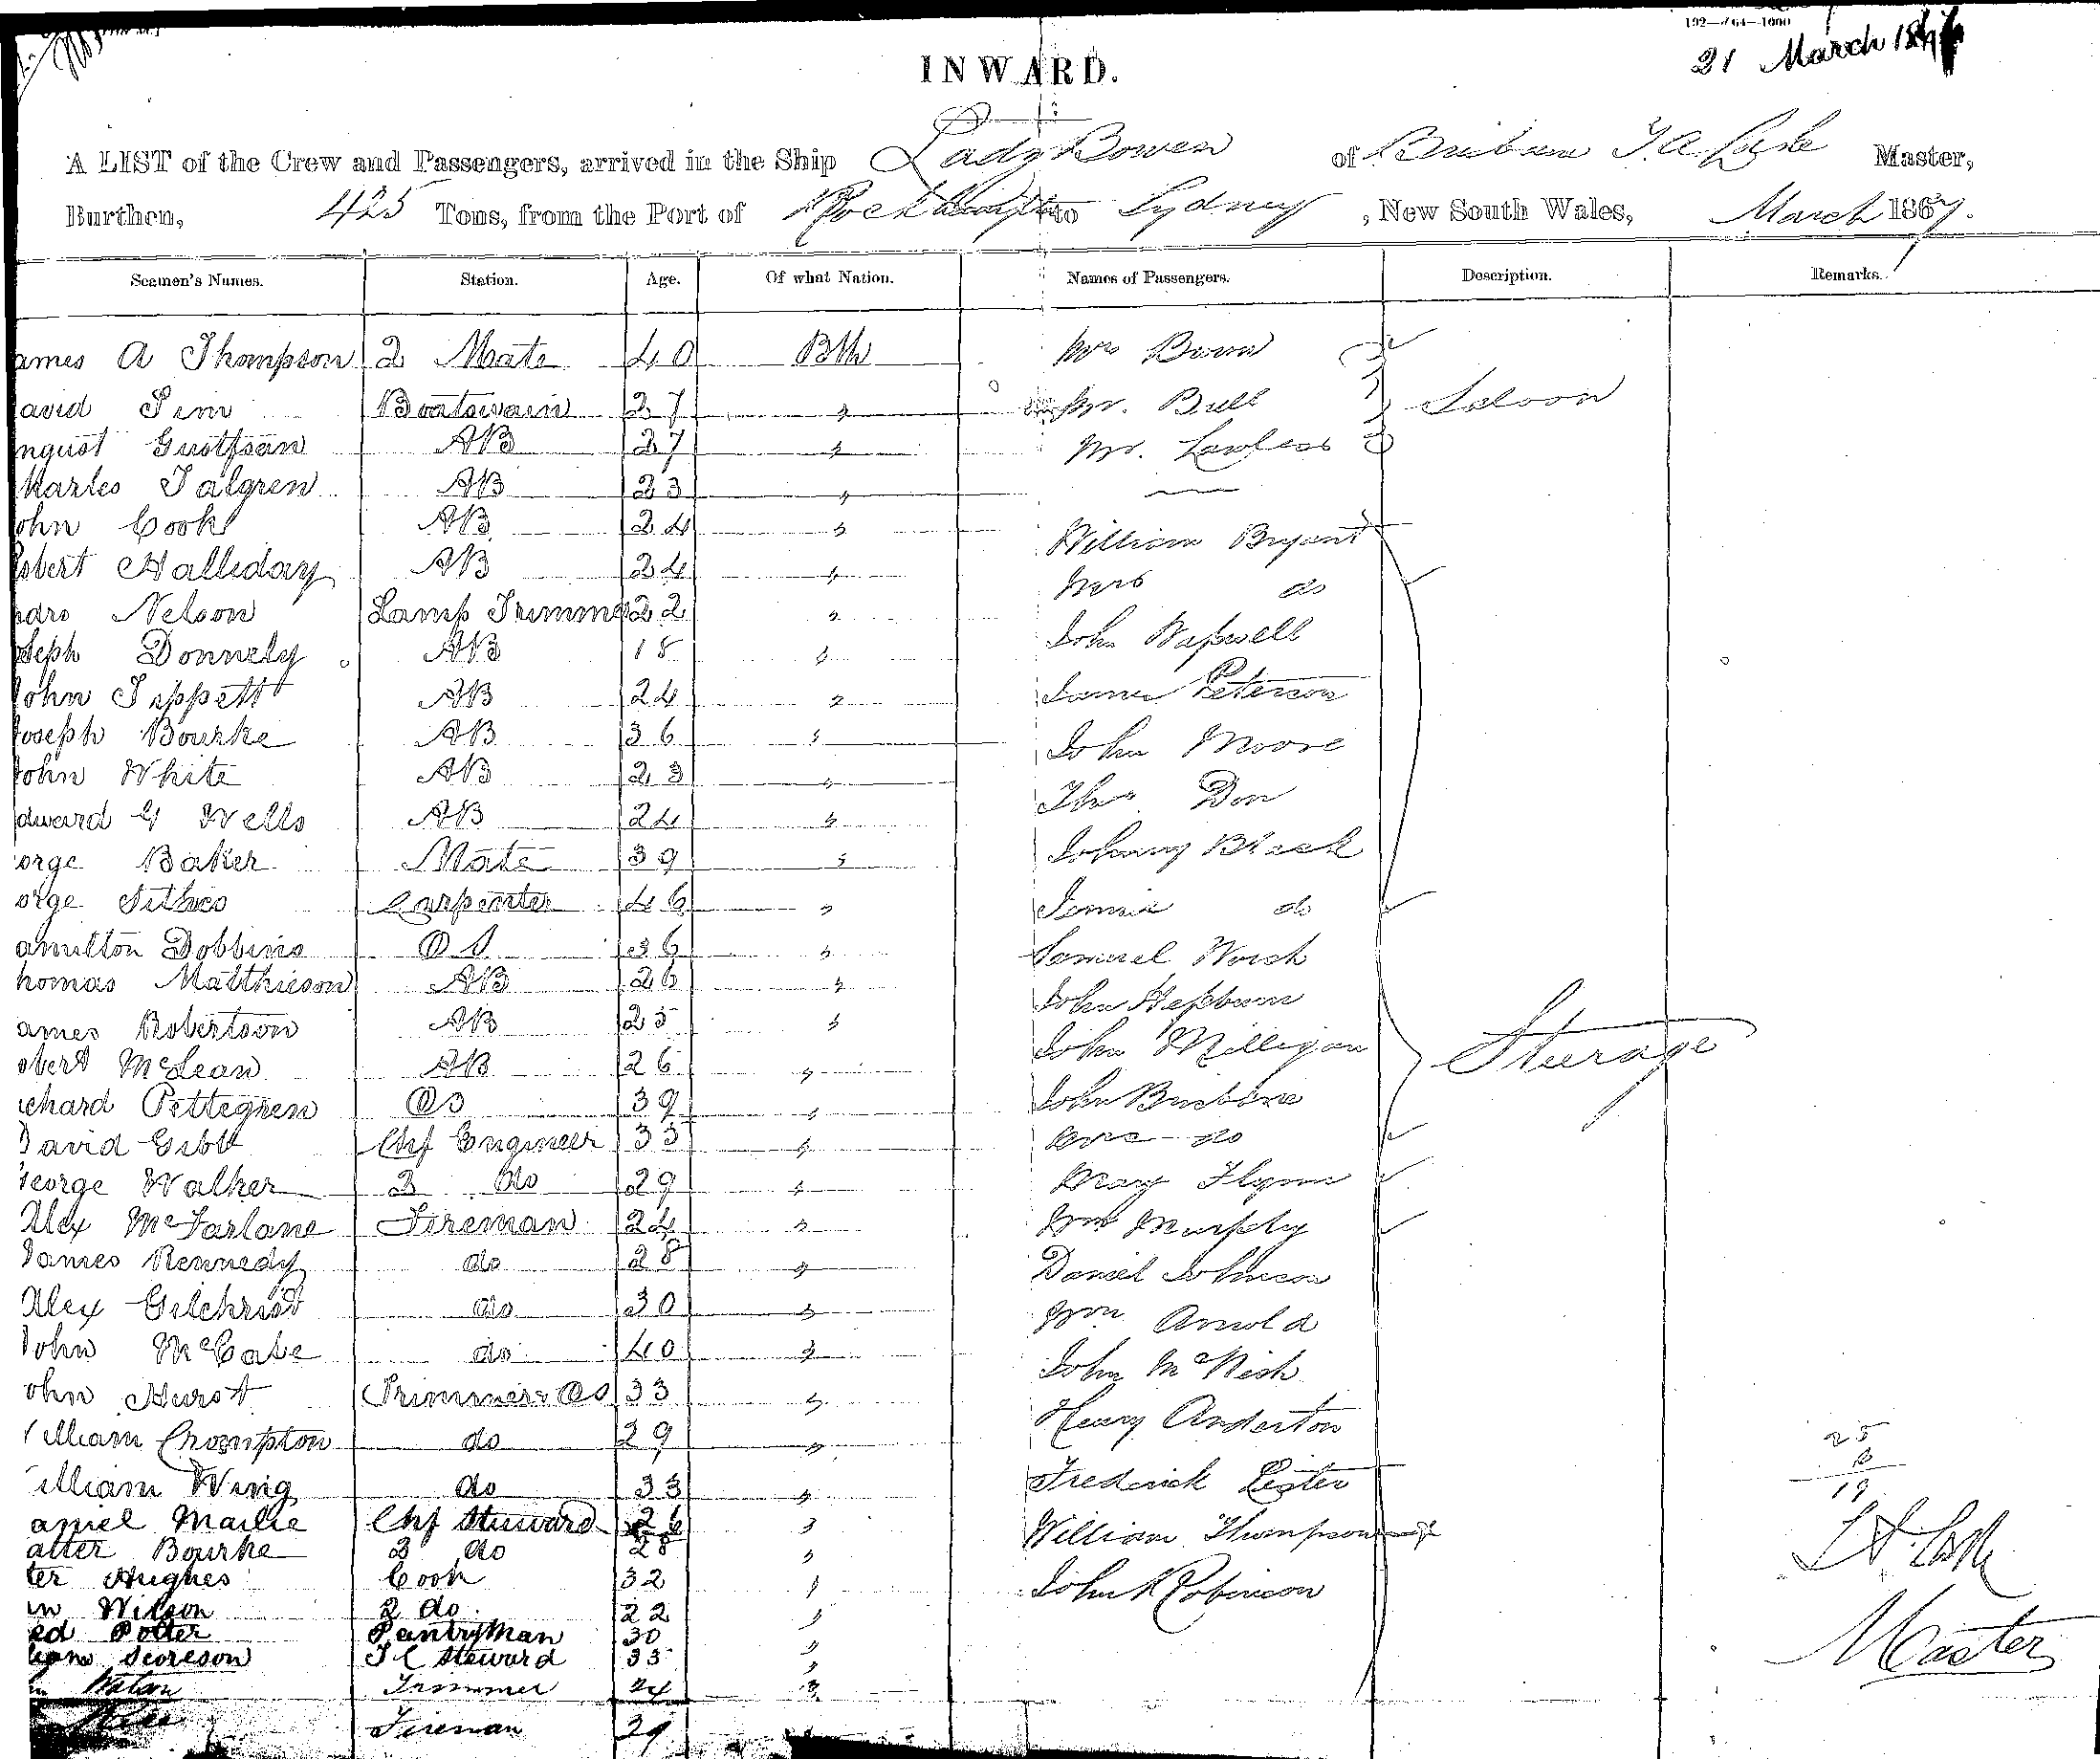 192—764—1000
21 March
INWARD.
A LIST of the Crew and Passengers, arrived in the Ship Lady Bowen of Brisbane Master,
Burthen, 425 Tons, from the Port of Rockhampt to Sydney , New South Wales, March 1867.
Seamen's Names. Station. Age. Of what Nation. Names of Passengers. Description. Remarks.
ames A Thompson 2 Mate 40 Mrs
avid Sim Boatswain 27 " Mr. Bull Saloon
ugust Gustfsan AB 27 " Mr. Lawless
harles Talgren AB 23 "
ohn Cook AB 24 " William Bryant
obert Halliday AB 24 " Mrs do
Nelson Lamp Trimmer 22 " John
oseph Donnely AB 18 " James Peterson
John Tippett AB 24 " John Moore
Joseph Bourke AB 36 " Thos Don
John White AB 23 " Johnny Black
dward G Wells AB 24 " do
orge Baker Mate 39 " Samuel
orge Carpenter 46 " John Hepburn
amilton Dobbins OS 36 " John Milligan Sturage
homas Matthieson AB 26 " John Brisbane
ames Robertson AB 25 " do
obert McLean AB 26 " Mary Flynn
ichard Pettegren OS 39 " Murphy
David Gibb Chf Engineer 33 " Daniel Johnson
George Walker 2 do 29 " Wm Arnold
Alex McFarlane Fireman 24 " John McNish
James Kennedy do 28 " Henry Anderton
Alex Gilchrist do 30 " Frederick Lister
John McCabe do 40 " William Thompson
ohn Hurst Trimmer & OS 33 " John R Robinson
illiam Crompton do 29 " 25
illiam Wing do 33 " 6
aniel Mailie Chf Steward 26 " 19
alter Bourke 2 do 28 "
ter Hughes Cook 32 " Master
Wilson 2 do 22 "
ed Potter Pantryman 30 "
Steward 33 "
Trimmer 24 "
Fireman 29